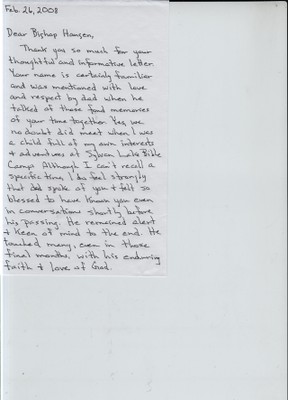 Feb. 26, 2008
Dear Bishop Hansen,
Thank you so much for your
thoughtful and informative letter.
Your name is certainly familiar
and was mentioned with love
and respect by dad when he
talked of those fond memories
of your time together. Yes, we
no doubt did meet when I was
a child full of my own interests
+ adventures at Sylvan Lake Bible
Camp. Although I can't recall a
specific time, I do feel strongly
that dad spoke of you + felt so
blessed to have known you even
in conversations shortly before
his passing. He remained alert
+ keen of mind to the end. He
touched many, even in those
final months, with his enduring
faith + love of God.